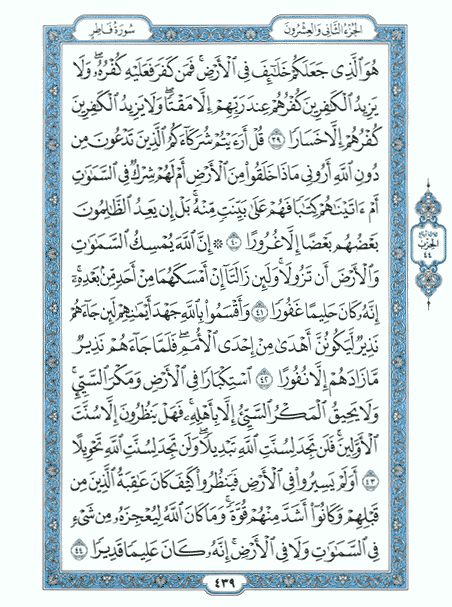 الجزء الثاني والعشرون
سورة فاطر
هُوَ ٱلَّذِي جَعَلَكُمْ خَلَٰٓئِفَ فِي ٱلْأَرْضِ ۚ فَمَن كَفَرَ فَعَلَيْهِ كُفْرُهُۥ ۖ وَلَا
يَزِيدُ ٱلْكَٰفِرِينَ كُفْرُهُمْ عِندَ رَبِّهِمْ إِلَّا مَقْتًا ۖ وَلَا يَزِيدُ ٱلْكَٰفِرِينَ
كُفْرُهُمْ إِلَّا خَسَارًا ٣٩ قُلْ أَرَءَيْتُمْ شُرَكَآءَكُمُ ٱلَّذِينَ تَدْعُونَ مِن
دُونِ ٱللَّهِ أَرُونِي مَاذَا خَلَقُوا۟ مِنَ ٱلْأَرْضِ أَمْ لَهُمْ شِرْكٌ فِي ٱلسَّمَٰوَٰتِ
أَمْ ءَاتَيْنَٰهُمْ كِتَٰبًا فَهُمْ عَلَىٰ بَيِّنَتٍ مِّنْهُ ۚ بَلْ إِن يَعِدُ ٱلظَّٰلِمُونَ
بَعْضُهُم بَعْضًا إِلَّا غُرُورًا ٤٠ ۞ إِنَّ ٱللَّهَ يُمْسِكُ ٱلسَّمَٰوَٰتِ
وَٱلْأَرْضَ أَن تَزُولَا ۚ وَلَئِن زَالَتَآ إِنْ أَمْسَكَهُمَا مِنْ أَحَدٍ مِّنۢ بَعْدِهِۦٓ ۚ
إِنَّهُۥ كَانَ حَلِيمًا غَفُورًا ٤١ وَأَقْسَمُوا۟ بِٱللَّهِ جَهْدَ أَيْمَٰنِهِمْ لَئِن جَآءَهُمْ
نَذِيرٌ لَّيَكُونُنَّ أَهْدَىٰ مِنْ إِحْدَى ٱلْأُمَمِ ۖ فَلَمَّا جَآءَهُمْ نَذِيرٌ
مَّا زَادَهُمْ إِلَّا نُفُورًا ٤٢ ٱسْتِكْبَارًا فِي ٱلْأَرْضِ وَمَكْرَ ٱلسَّيِّئِ ۚ
وَلَا يَحِيقُ ٱلْمَكْرُ ٱلسَّيِّئُ إِلَّا بِأَهْلِهِۦ ۚ فَهَلْ يَنظُرُونَ إِلَّا سُنَّتَ
ٱلْأَوَّلِينَ ۚ فَلَن تَجِدَ لِسُنَّتِ ٱللَّهِ تَبْدِيلًا ۖ وَلَن تَجِدَ لِسُنَّتِ ٱللَّهِ تَحْوِيلًا
٤٣ أَوَلَمْ يَسِيرُوا۟ فِي ٱلْأَرْضِ فَيَنظُرُوا۟ كَيْفَ كَانَ عَٰقِبَةُ ٱلَّذِينَ مِن
قَبْلِهِمْ وَكَانُوٓا۟ أَشَدَّ مِنْهُمْ قُوَّةً ۚ وَمَا كَانَ ٱللَّهُ لِيُعْجِزَهُۥ مِن شَيْءٍ
فِي ٱلسَّمَٰوَٰتِ وَلَا فِي ٱلْأَرْضِ ۚ إِنَّهُۥ كَانَ عَلِيمًا قَدِيرًا ٤٤
٤٣٩
الحزب
٤٤